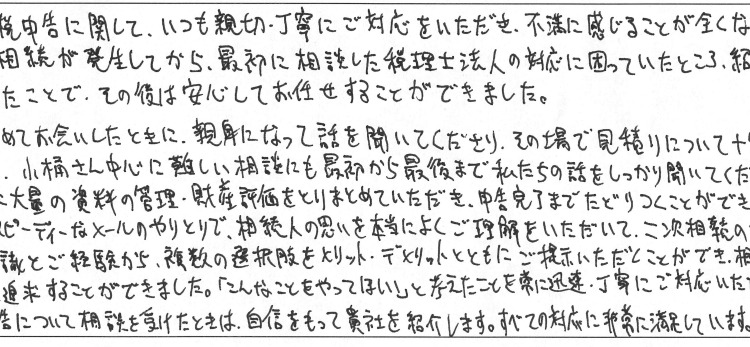 税申告に関して、いつも親切・丁寧にご対応をいただき、不満に感じることが全くな
相続が発生してから、最初に相談した税理士法人の対応に困っていたところ、紹
たことで、その後は安心してお任せすることができました。
めてお会いしたときに、親身になって話を聞いてくださり、その場で見積りについて十
、小桶さん中心に難しい相談にも最初から最後まで私たちの話をしっかり聞いてくだ
大量の資料の管理・財産評価をとりまとめていただき、申告完了までたどりつくことができ
スピーディーなメールのやりとりで、相続人の思いを本当によくご理解をいただいて、二次相続の
識とご経験から、複数の選択肢をメリット・デメリットとともにご提示いただくことができ、相
追求することができました。「こんなことをやってほしい」と考えたことを常に迅速・丁寧にご対応いただ
告について相談を受けたときは、自信をもって貴社を紹介します。すべての対応に非常に満足しています。